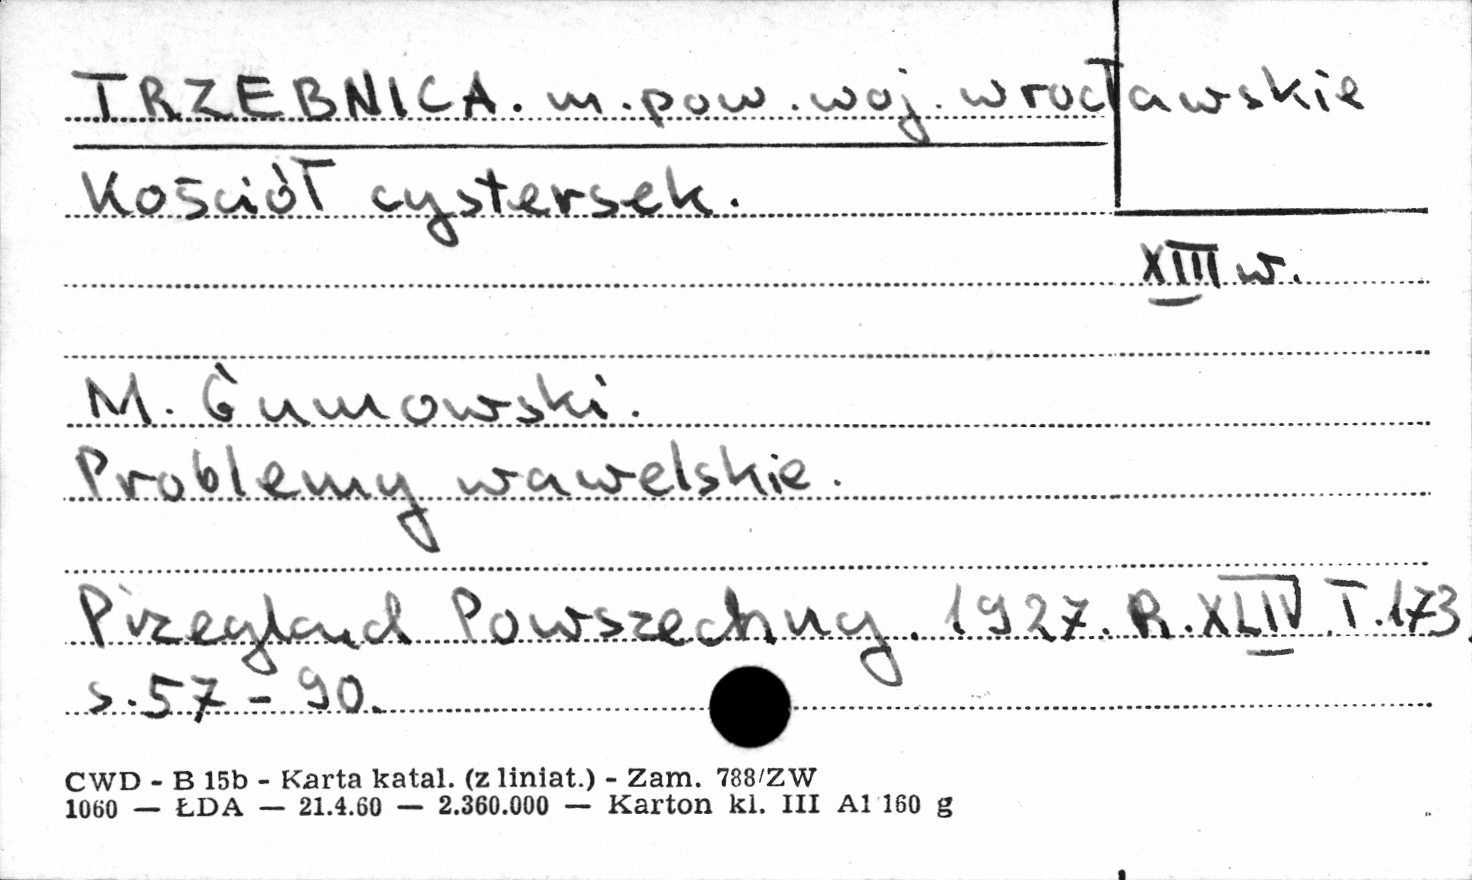 TRZEBNICA. m. pow. woj. wrocławskie
Kościół cystersek.
XIII w.
M. Gumowski.
Problemy wawelskie.
Przegląd Powszechny. 1927. R. XLIV T. 173.
s. 57 - 90.
CWD - B 15b - Karta katal. (z liniat.) - Zam. 788/ZW
1060 — ŁDA — 21.4.60 — 2.360.000 — Karton kl. III A1 160 g